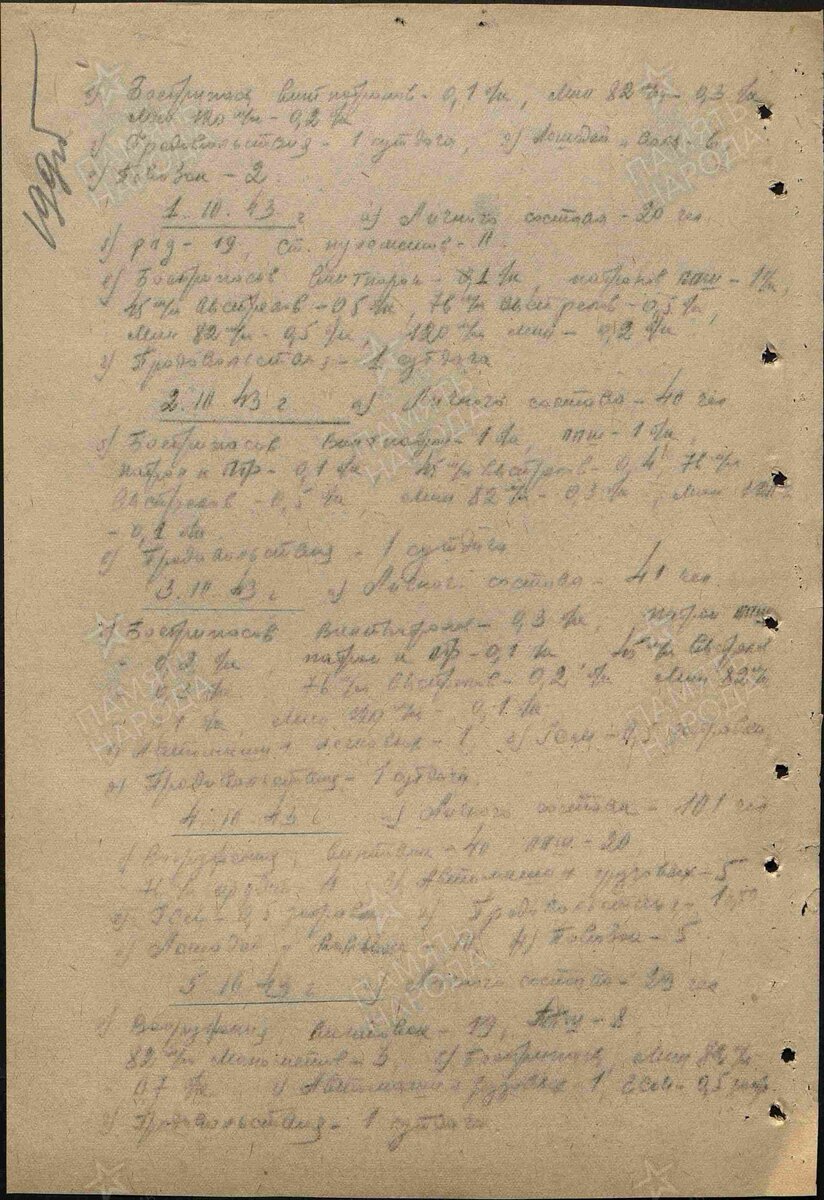 в) Боеприпасов винтпатронов - 0,1 б/к, Мин 82 м/м - 0,3 б/к
Мин 120 м/м - 0,2 б/к
г) Продовольствия - 1 сутдача, д) Лошадей - 6
е) Повозок - 2
1.10.43 г а) Личного состава - 20 чел
б) - 19, ст. пулеметов - 11.
в) Боеприпасов Винтпатрон - 0,1 б/к, патронов ППШ - 1 б/к,
45 м/м Выстрелов - 0,5 б/к, 76 м/м Выстрелов - 0,5 б/к,
Мин 82 м/м - 0,5 б/к, 120 м/м мин - 0,2 б/к
г) Продовольствия - 1 сутдача
2.10.43 г а) Личного состава - 40 чел
б) Боеприпасов Винтпатрон - 1 б/к, ППШ - 1 б/к,
патрон к ПТР - 0,1 б/к 45 м/м Выстрелов - 0,4, 76 м/м
Выстрелов - 0,5 б/к, Мин 82 м/м - 0,3 б/к, Мин 120 м/м
- 0,1 б/к
в) Продовольствия - 1 сутдача
3.10.43 г а) Личного состава - 41 чел.
б) Боеприпасов Винтпатрон - 0,3 б/к, патрон ППШ
- б/к патрон к ПТР - 0,1 б/к 45 м/м Выстрелов
- б/к 76 м/м Выстрелов - 0,2 б/к Мин 82 м/м
- 1 б/к, Мин 120 м/м - 0,1 б/к
в) Автомашин легковых - 1, г) ГСМ - 0,5 заправки
д) Продовольствия - 1 сутдача
4.10.43 г а) Личного состава - 101 чел
б) Вооружения, винтовок - 40 ППШ - 20
4 Автомашин грузовых - 5
ГСМ - 0,5 заправки Продовольствия -
Лошадей - 10 Повозок - 5
5.10.43 г а) Личного состава - 29 чел
б) Вооружения Винтовок - 19, ППШ - 8
82 м/м Минометов - 3, в) Боеприпасов, Мин 82 м/м
- 0,7 б/к г) Автомашин грузовых - 1, ГСМ - 0,5 запр.
Продовольствия - 1 сутдача
ПАМЯТЬ НАРОДА